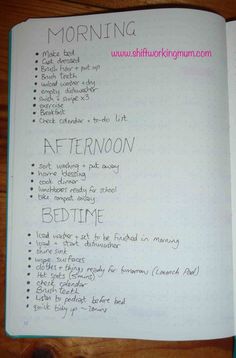 MORNING
www.shiftworkingmum.com
Make bed
Get dressed
Brush hair + put up
Brush teeth
unload washer + dry
empty dishwasher
swish + swipe x3
exercise
Breakfast
Check calendar + to-do list
AFTERNOON
sort washing + put away
home blessing
cook dinner
lunchboxes ready for school
take compost away
BEDTIME
load washer + set to be finished in morning
load + start dishwasher
shine sink
wipe surfaces
clothes + things ready for tomorrow (Launch Pad)
Hot spots (5mins)
check calendar
Brush teeth
Listen to podcast before bed
quick tidy up - 20mins